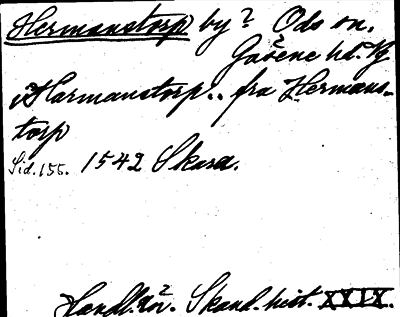 Hermanstorp by? Ods sn.
Gäsene hd. Vg
"Harmanstorp.. fra Hermans-
torp
Sid. 155. 1542 Skara.
Handl. rör. Skand. hist. XXIX.